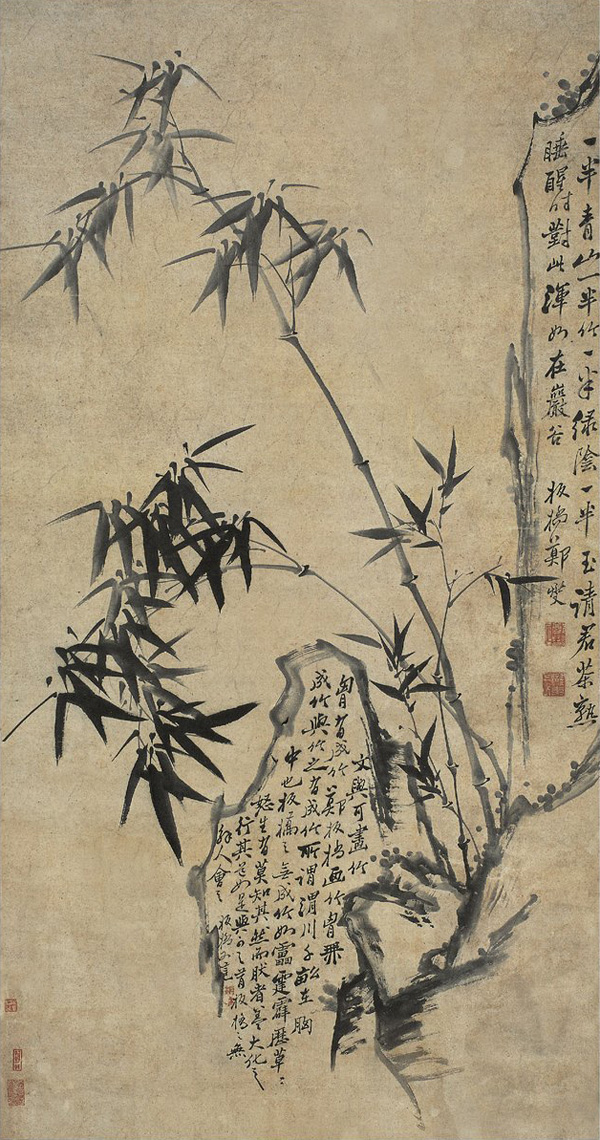 一半青山一半竹一半绿陰一半玉請君茶熟
睡醒時對此渾如在巖谷 板橋鄭燮
文與可畫竹
胷有成竹鄭板橋画竹胷無
成竹與可之有成竹所謂渭川千畝在胸
中也板橋之無成竹如雷霆霹歷草
怒生有莫知其然而然者蓋大化之
行其道如是與可之有板橋之無
解人會之 板橋